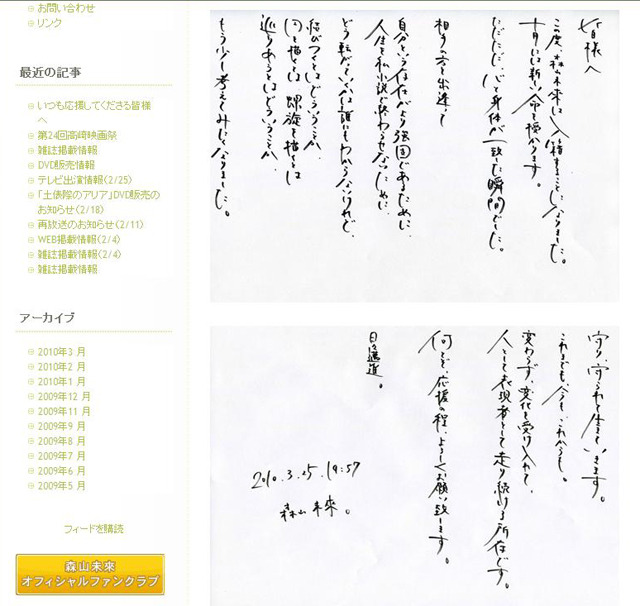 お問い合わせ
リンク
最近の記事
いつも応援してくださる皆様
へ
第24回高崎映画祭
雑誌掲載情報
DVD販売情報
テレビ出演情報(2/25)
「土俵際のアリア」DVD販売の
お知らせ(2/18)
再放送のお知らせ(2/11)
WEB掲載情報(2/4)
雑誌掲載情報(2/4)
雑誌掲載情報
アーカイブ
2010年3 月
2010年2 月
2010年1 月
2009年12 月
2009年11 月
2009年9 月
2009年8 月
2009年7 月
2009年6 月
2009年5 月
フィードを購読
森山未來
オフィシャルファンクラブ
皆様へ
この度、森山未來は入籍することになりました。
十月には新しい命を授かります。
ただただ、心と身体が一致した瞬間でした。
相手の方と出逢って
自分という存在がより強固であるために、
人生を私小説で終わらせないために、
どう転がっていくかは誰にもわからないけれど、
結びつくとはどういうことか、
円を描くとは 螺旋を描くとは
巡りあうとはどういうことか、
もう少し考えてみたくなりました。
守り、守られて生きていきます。
これまでも、今も、これからも。
変わらず、変化を受け入れて、
人として表現者として走り続ける所存です。
何とぞ、応援の程、よろしくお願い致します。
日々邁進。
2010.3.25.19:57
森山未來。